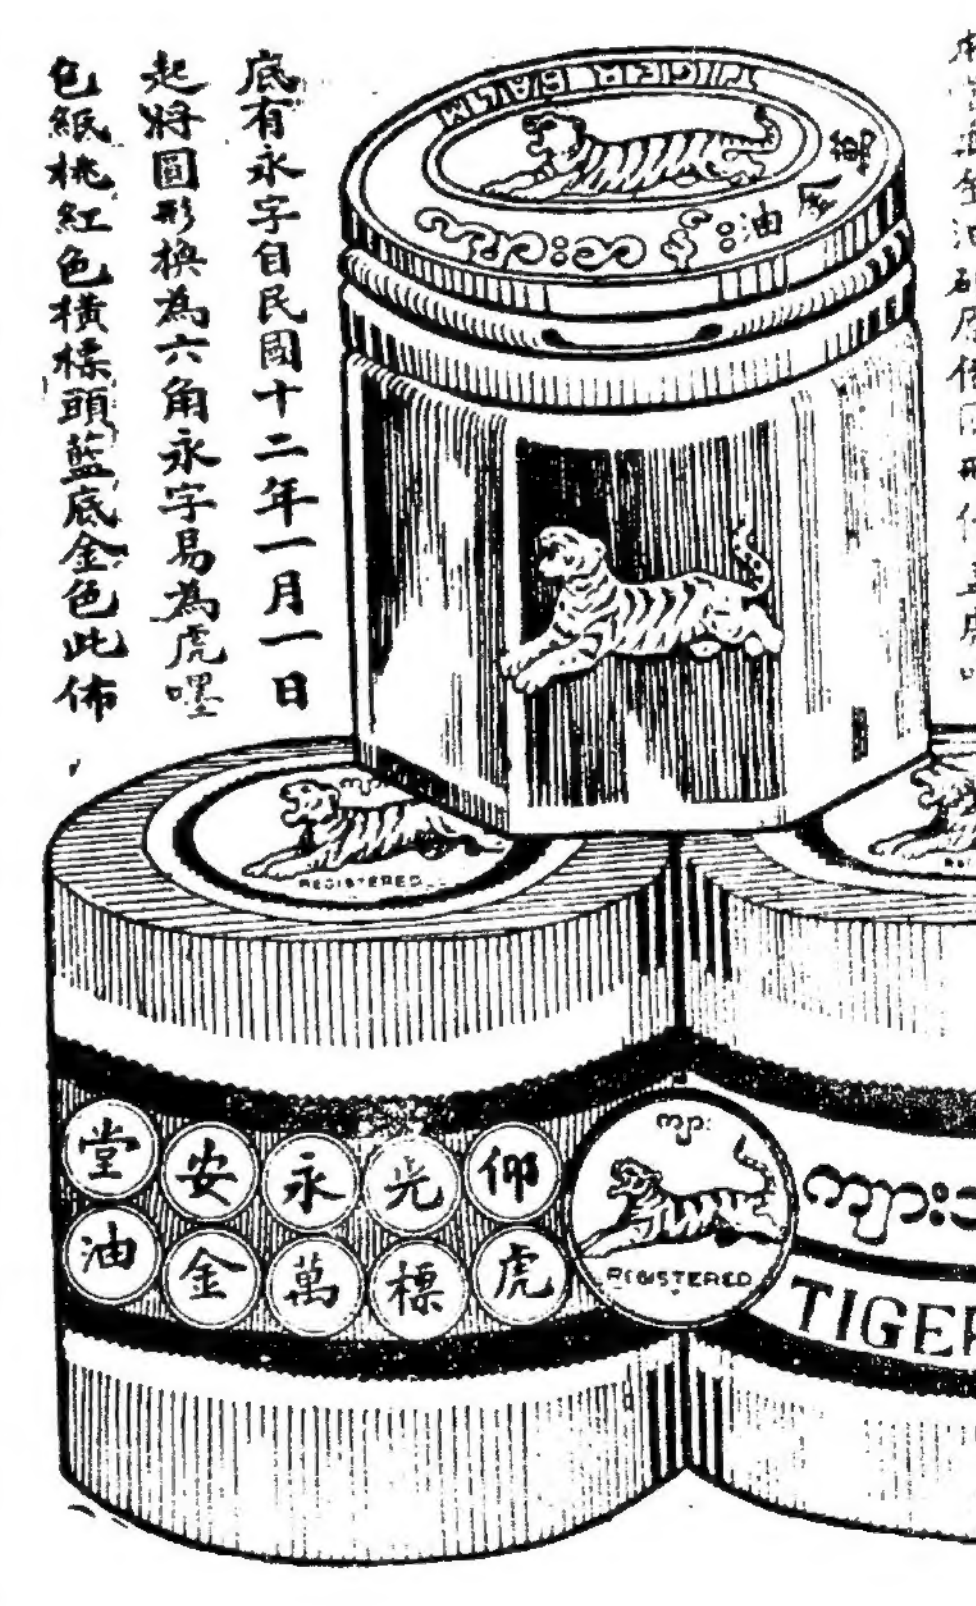 底有永字自民國十二年一月一日
起將圖形換為六角永字易為虎嘿
色紙桃紅色橫標頭藍底金色此佈
TIGER BALM
萬金油
REGISTERED
仰光永安堂
虎標萬金油
ကျား
REGISTERED
ကျား
TIGER